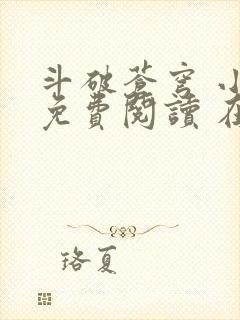 斗破蒼穹 小
免費閱讀 在
珞夏